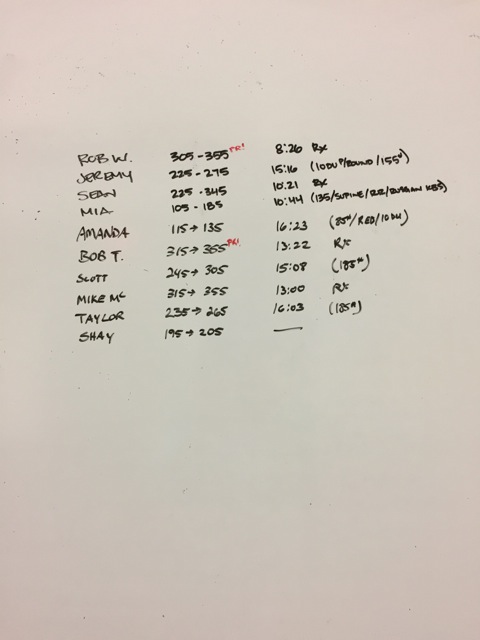 ROB W. 305 - 355 PR! 8:26 Rx
JEREMY 225 - 275 15:16 (10DU'S/ROUND/155#)
SEAN 225 - 345 10:21 Rx
MIA 105 - 185 10:44 (135/SUPINE/RR/RUSSIAN KBS)
AMANDA 115 → 135 16:23 (85#/RED/10DU)
BOB T. 315 → 365 PR! 13:22 Rx
SCOTT 245 → 305 15:08 (185#)
MIKE MC 315 → 355 13:00 Rx
TAYLOR 235 → 265 16:03 (185#)
SHAY 195 → 205 —